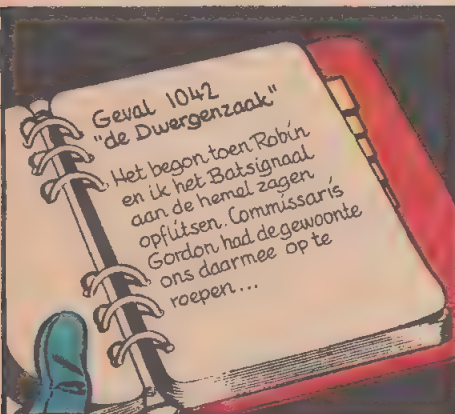 Geval 1042
"de Dwergenzaak"
Het begon toen Robin
en ik het Batsignaal
aan de hemel zagen
opflitsen. Commissaris
Gordon had de gewoonte
ons daarmee op te
roepen...